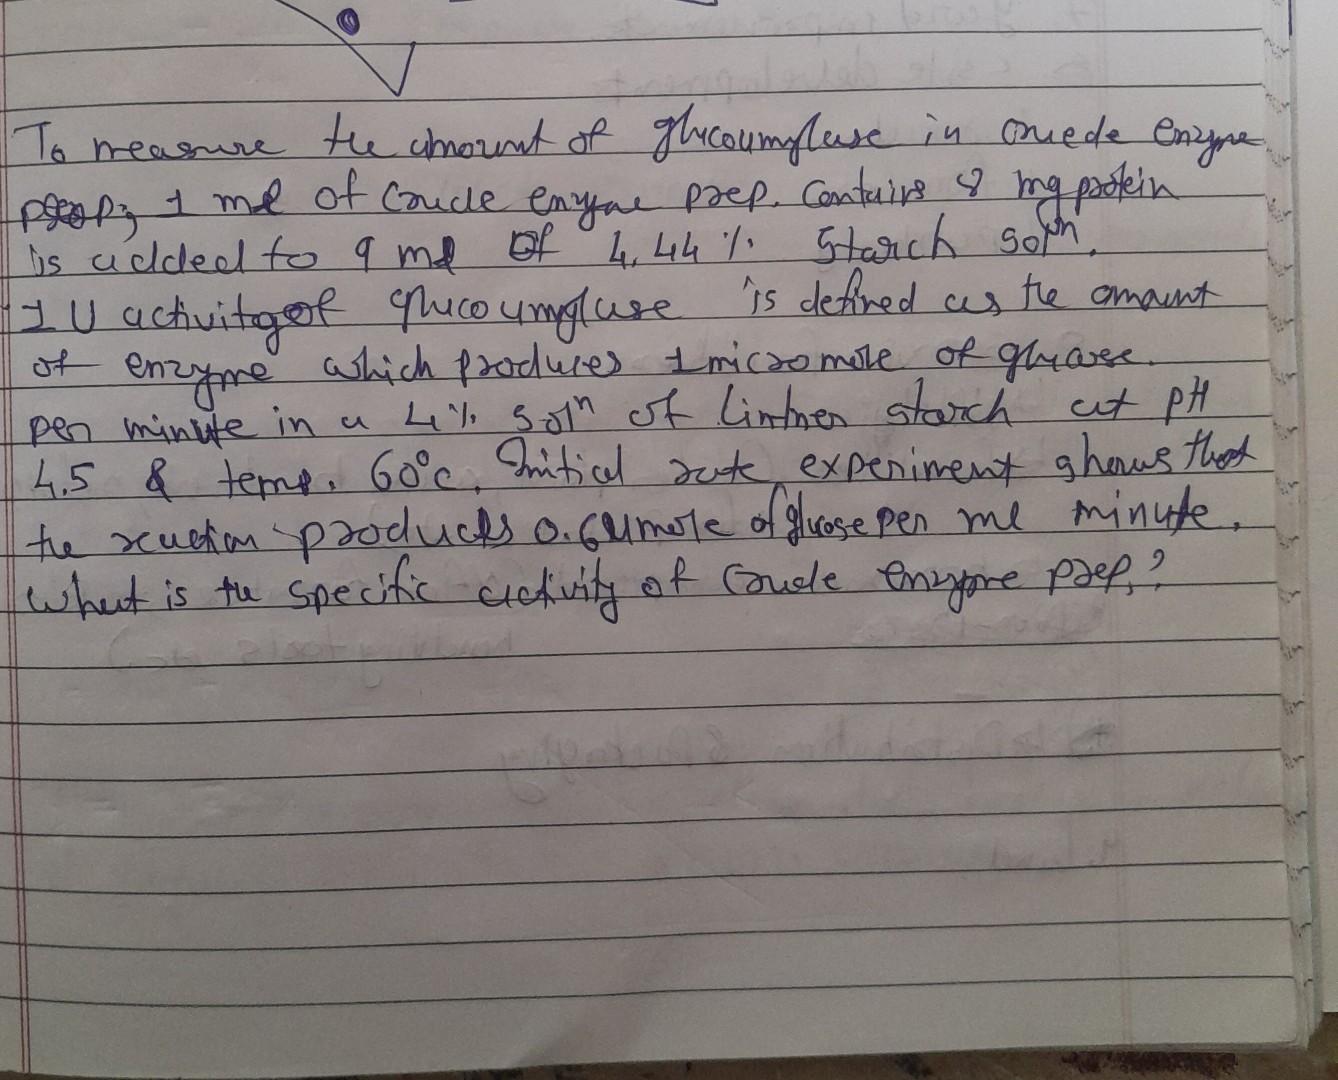 To measure the amount of glucoumylase in cruede enzyme
prep; 1 ml of Crude enzyme prep. Contains 8 mg protein
is added to 9 ml of 4.44% Starch soln.
1 U activity of glucoumylase is defined as the amount
of enzyme which produces 1 micromole of glucose
per minute in a 4% soln of lintner starch at pH
4.5 & temp. 60°c. Initial rate experiment shows that
the reaction produces 0.6 μmole of glucose per ml minute.
What is the specific activity of Crude enzyme prep.?